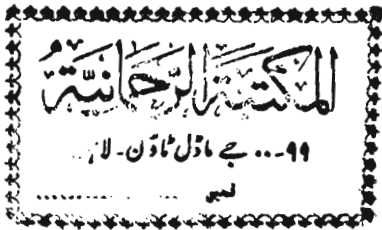 المكتبة الرحمانية
۹۹-.. جے ماڈل ٹاؤن - لا
نمبر ....................